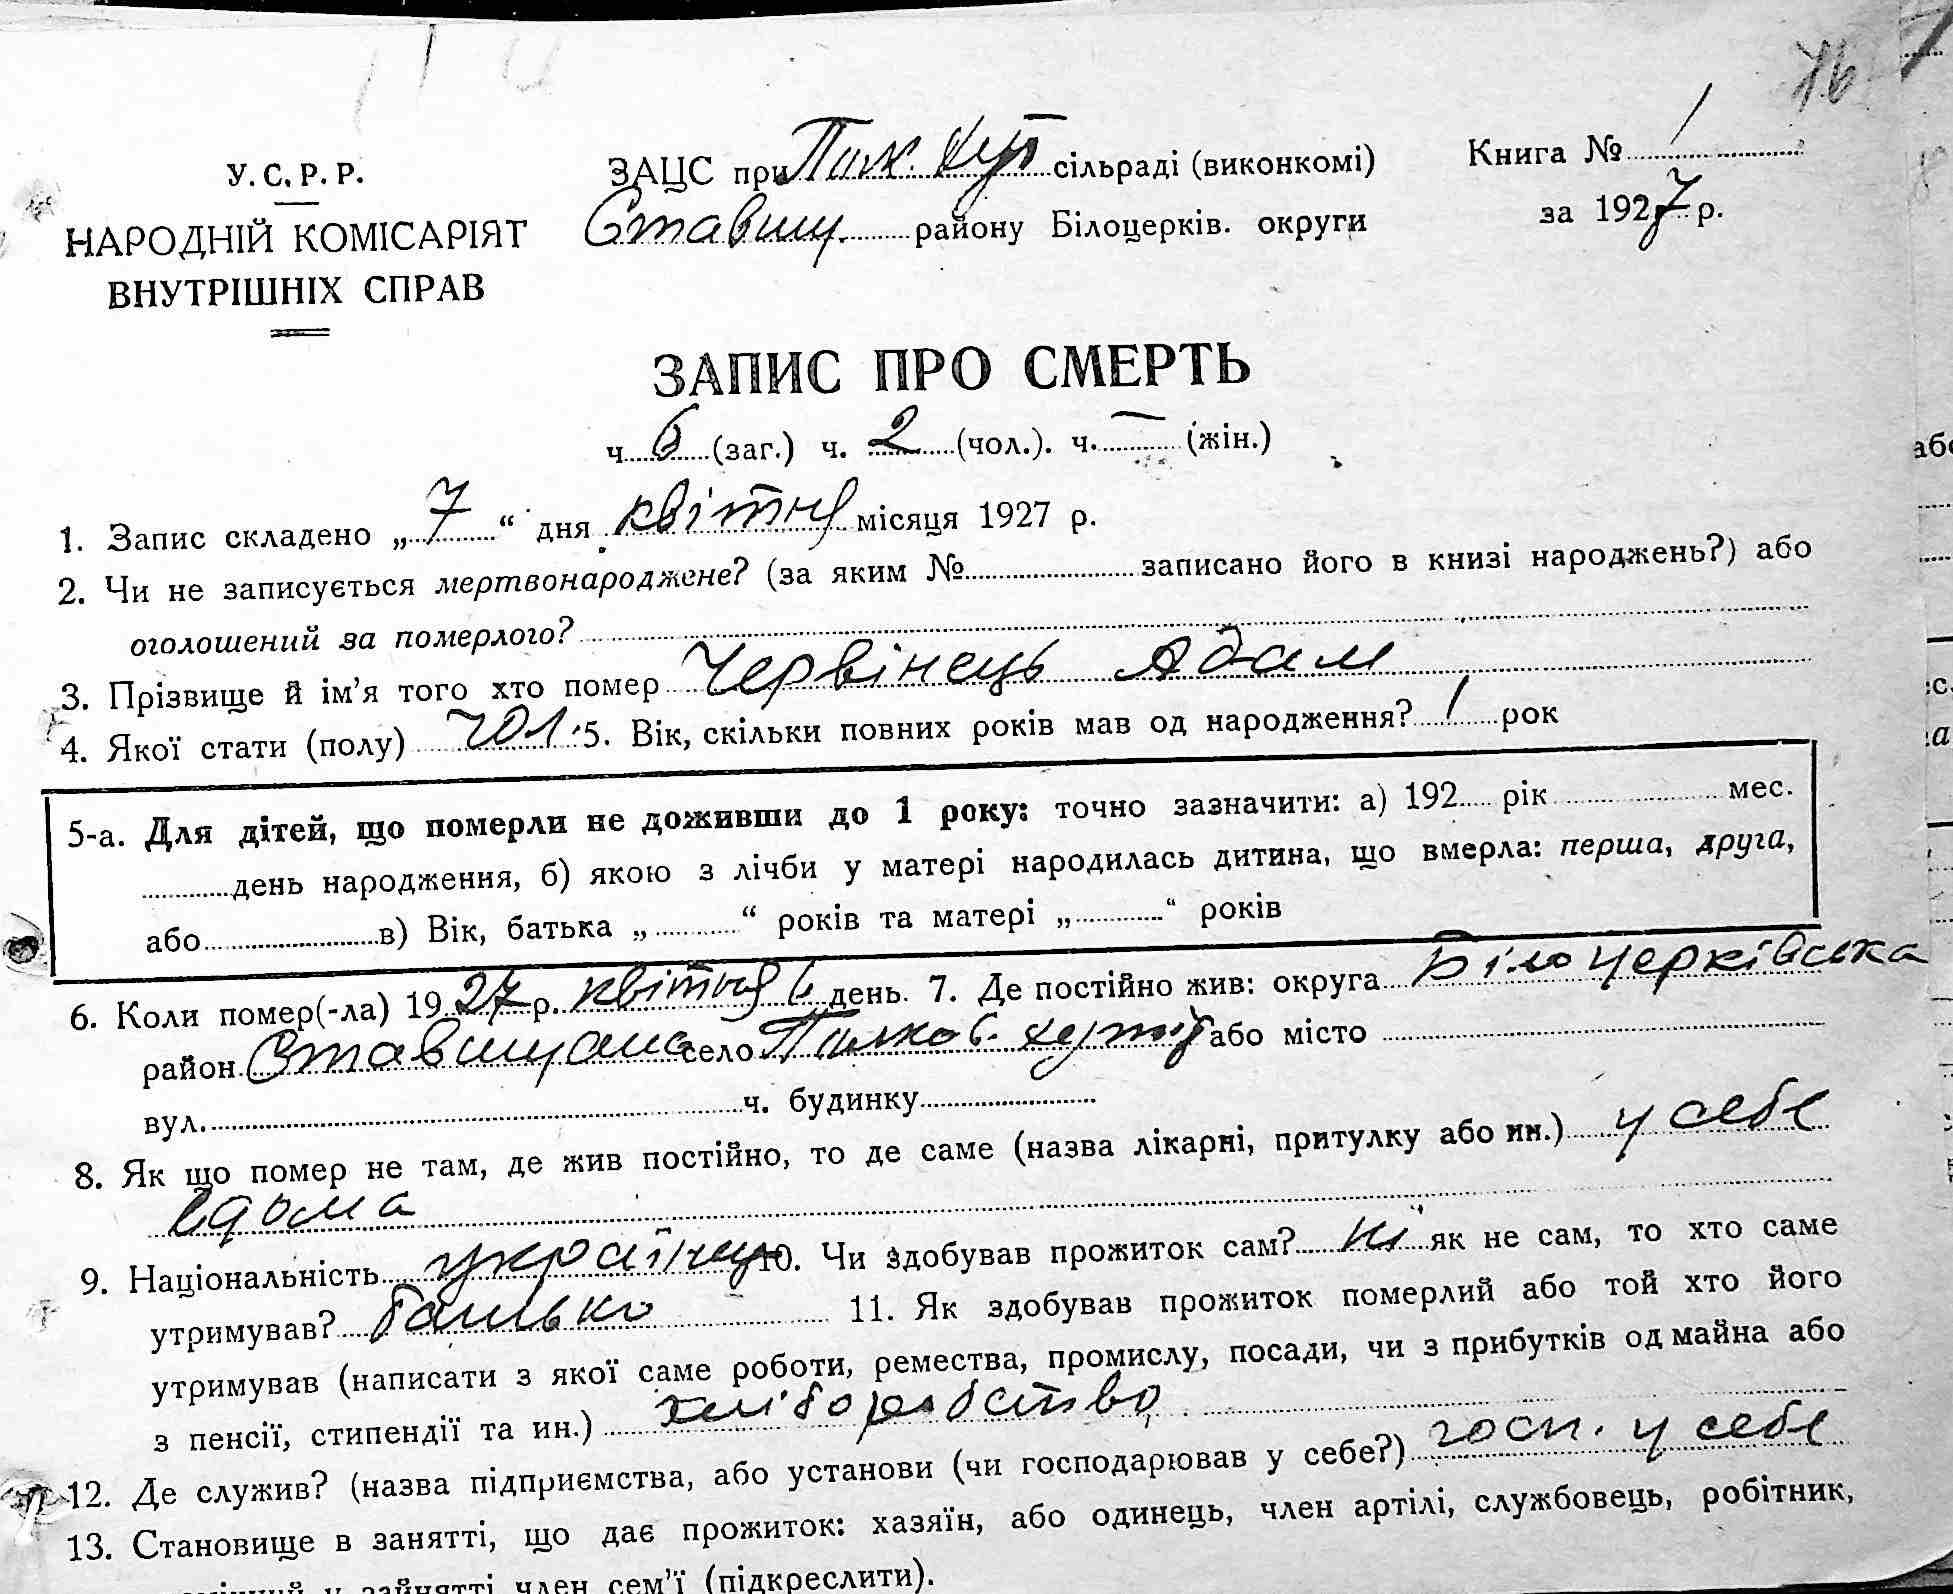 76
У.С.Р.Р.
НАРОДНІЙ КОМІСАРІЯТ
ВНУТРІШНІХ СПРАВ
ЗАЦС при Пилк. хут сільраді (виконкомі)
Ставищ. району Білоцерків. округи
Книга № 1
за 1927 р.
ЗАПИС ПРО СМЕРТЬ
ч 6 (заг.) ч. 2 (чол.). ч. — (жін.)
1. Запис складено „ 7 “ дня квітня місяця 1927 р.
2. Чи не записується мертвонароджене? (за яким № записано його в книзі народжень?) або
оголошений за померлого?
3. Прізвище й ім’я того хто помер Червінець Адам
4. Якої стати (полу) чол. 5. Вік, скільки повних років мав од народження? 1 рок
5-а. Для дітей, що померли не доживши до 1 року: точно зазначити: а) 192 рік мес.
день народження, б) якою з лічби у матері народилась дитина, що вмерла: перша, друга,
або в) Вік, батька „ “ років та матері „ “ років
6. Коли помер(-ла) 19 27 р. квітня 6 день. 7. Де постійно жив: округа Білоцерківська
район Ставищанс село Пилков. хутір або місто
вул. ч. будинку
8. Як що помер не там, де жив постійно, то де саме (назва лікарні, притулку або ин.) у себе
вдома
9. Національність українец 10. Чи здобував прожиток сам? ні як не сам, то хто саме
утримував? батько 11. Як здобував прожиток померлий або той хто його
утримував (написати з якої саме роботи, ремества, промислу, посади, чи з прибутків од майна або
з пенсії, стипендії та ин.) хліборобство
12. Де служив? (назва підприємства, або установи (чи господарював у себе?) госп. у себе
13. Становище в занятті, що дає прожиток: хазяїн, або одинець, член артілі, службовець, робітник,
у зайнятті член сем’ї (підкреслити).